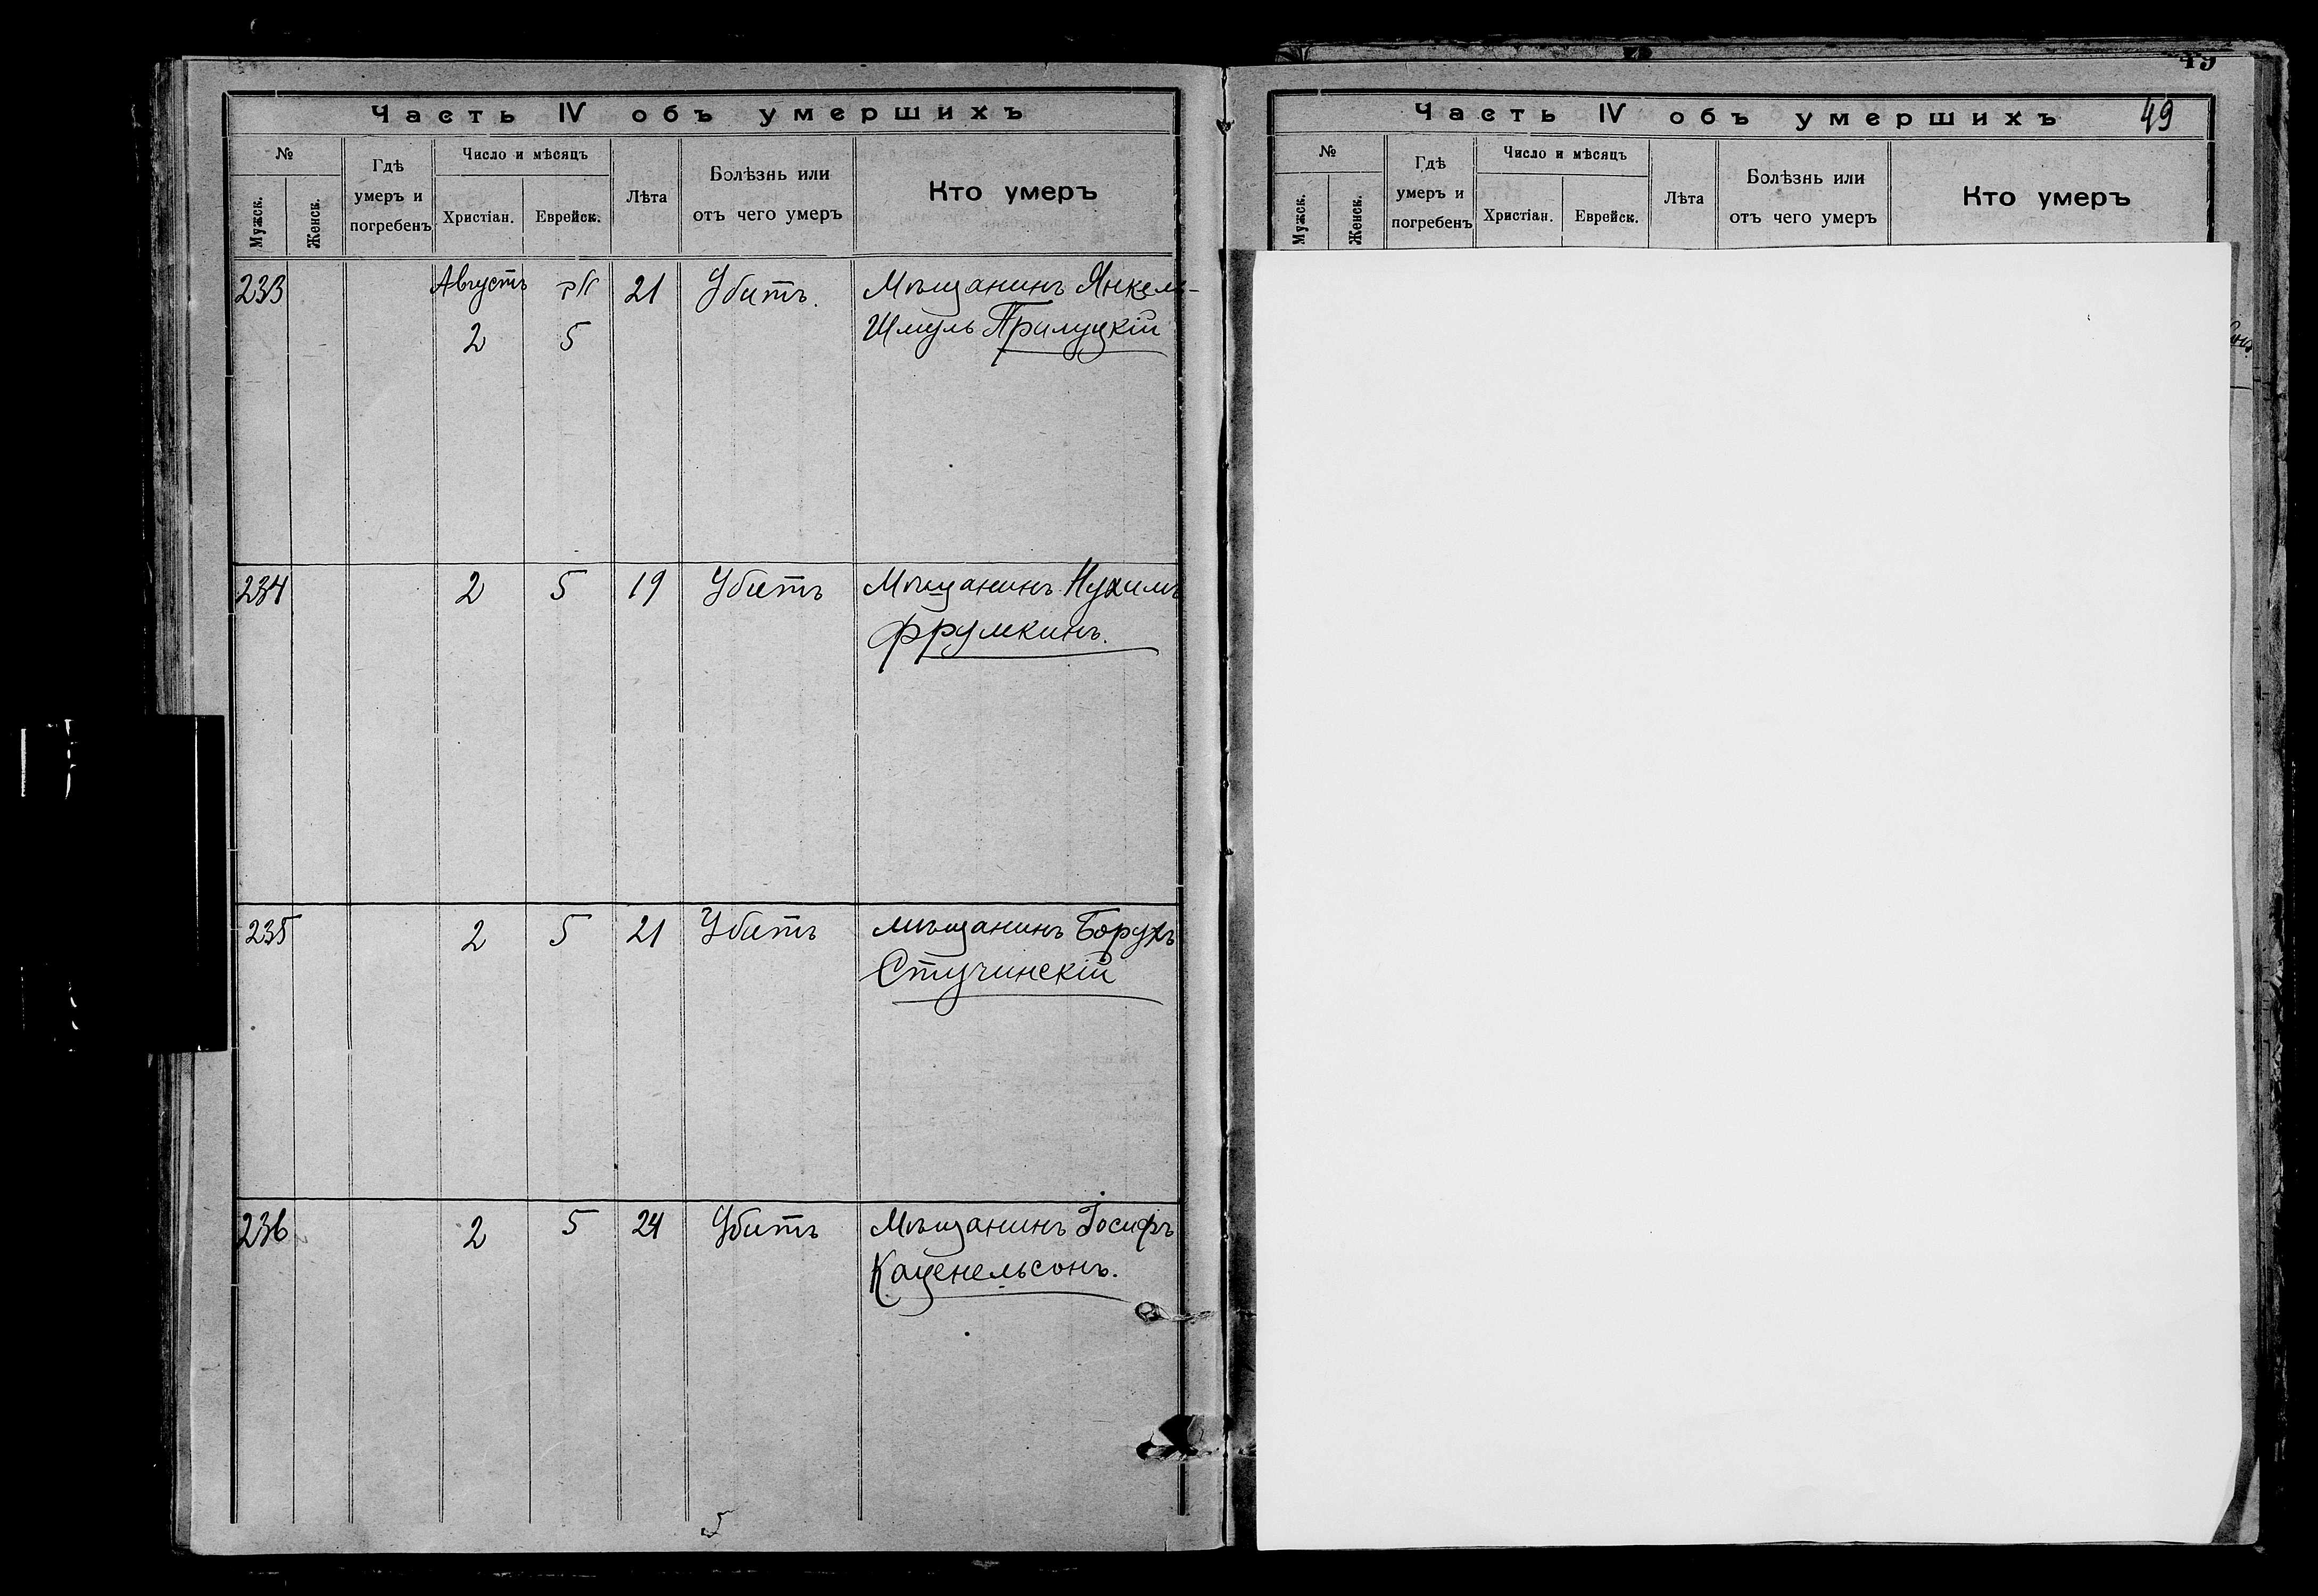 Часть IV объ умершихъ
№
Мужск.
Женск.
Гдѣ
умеръ и
погребенъ
Число и мѣсяцъ
Христіан.
Еврейск.
Лѣта
Болѣзнь или
отъ чего умеръ
Кто умеръ
233 Августъ 21 Убитъ. Мѣщанинъ Янкель-
2 5 Шмуль Прилуцкій
234 2 5 19 Убитъ Мѣщанинъ Нухимъ
Фрумкинъ.
235 2 5 21 Убитъ мѣщанинъ Борухъ
Стучинскій
236 2 5 24 Убитъ Мѣщанинъ Іосифъ
Каценельсонъ.
5
49
Часть IV объ умершихъ 49
№
Мужск.
Женск.
Гдѣ
умеръ и
погребенъ
Число и мѣсяцъ
Христіан.
Еврейск.
Лѣта
Болѣзнь или
отъ чего умеръ
Кто умеръ